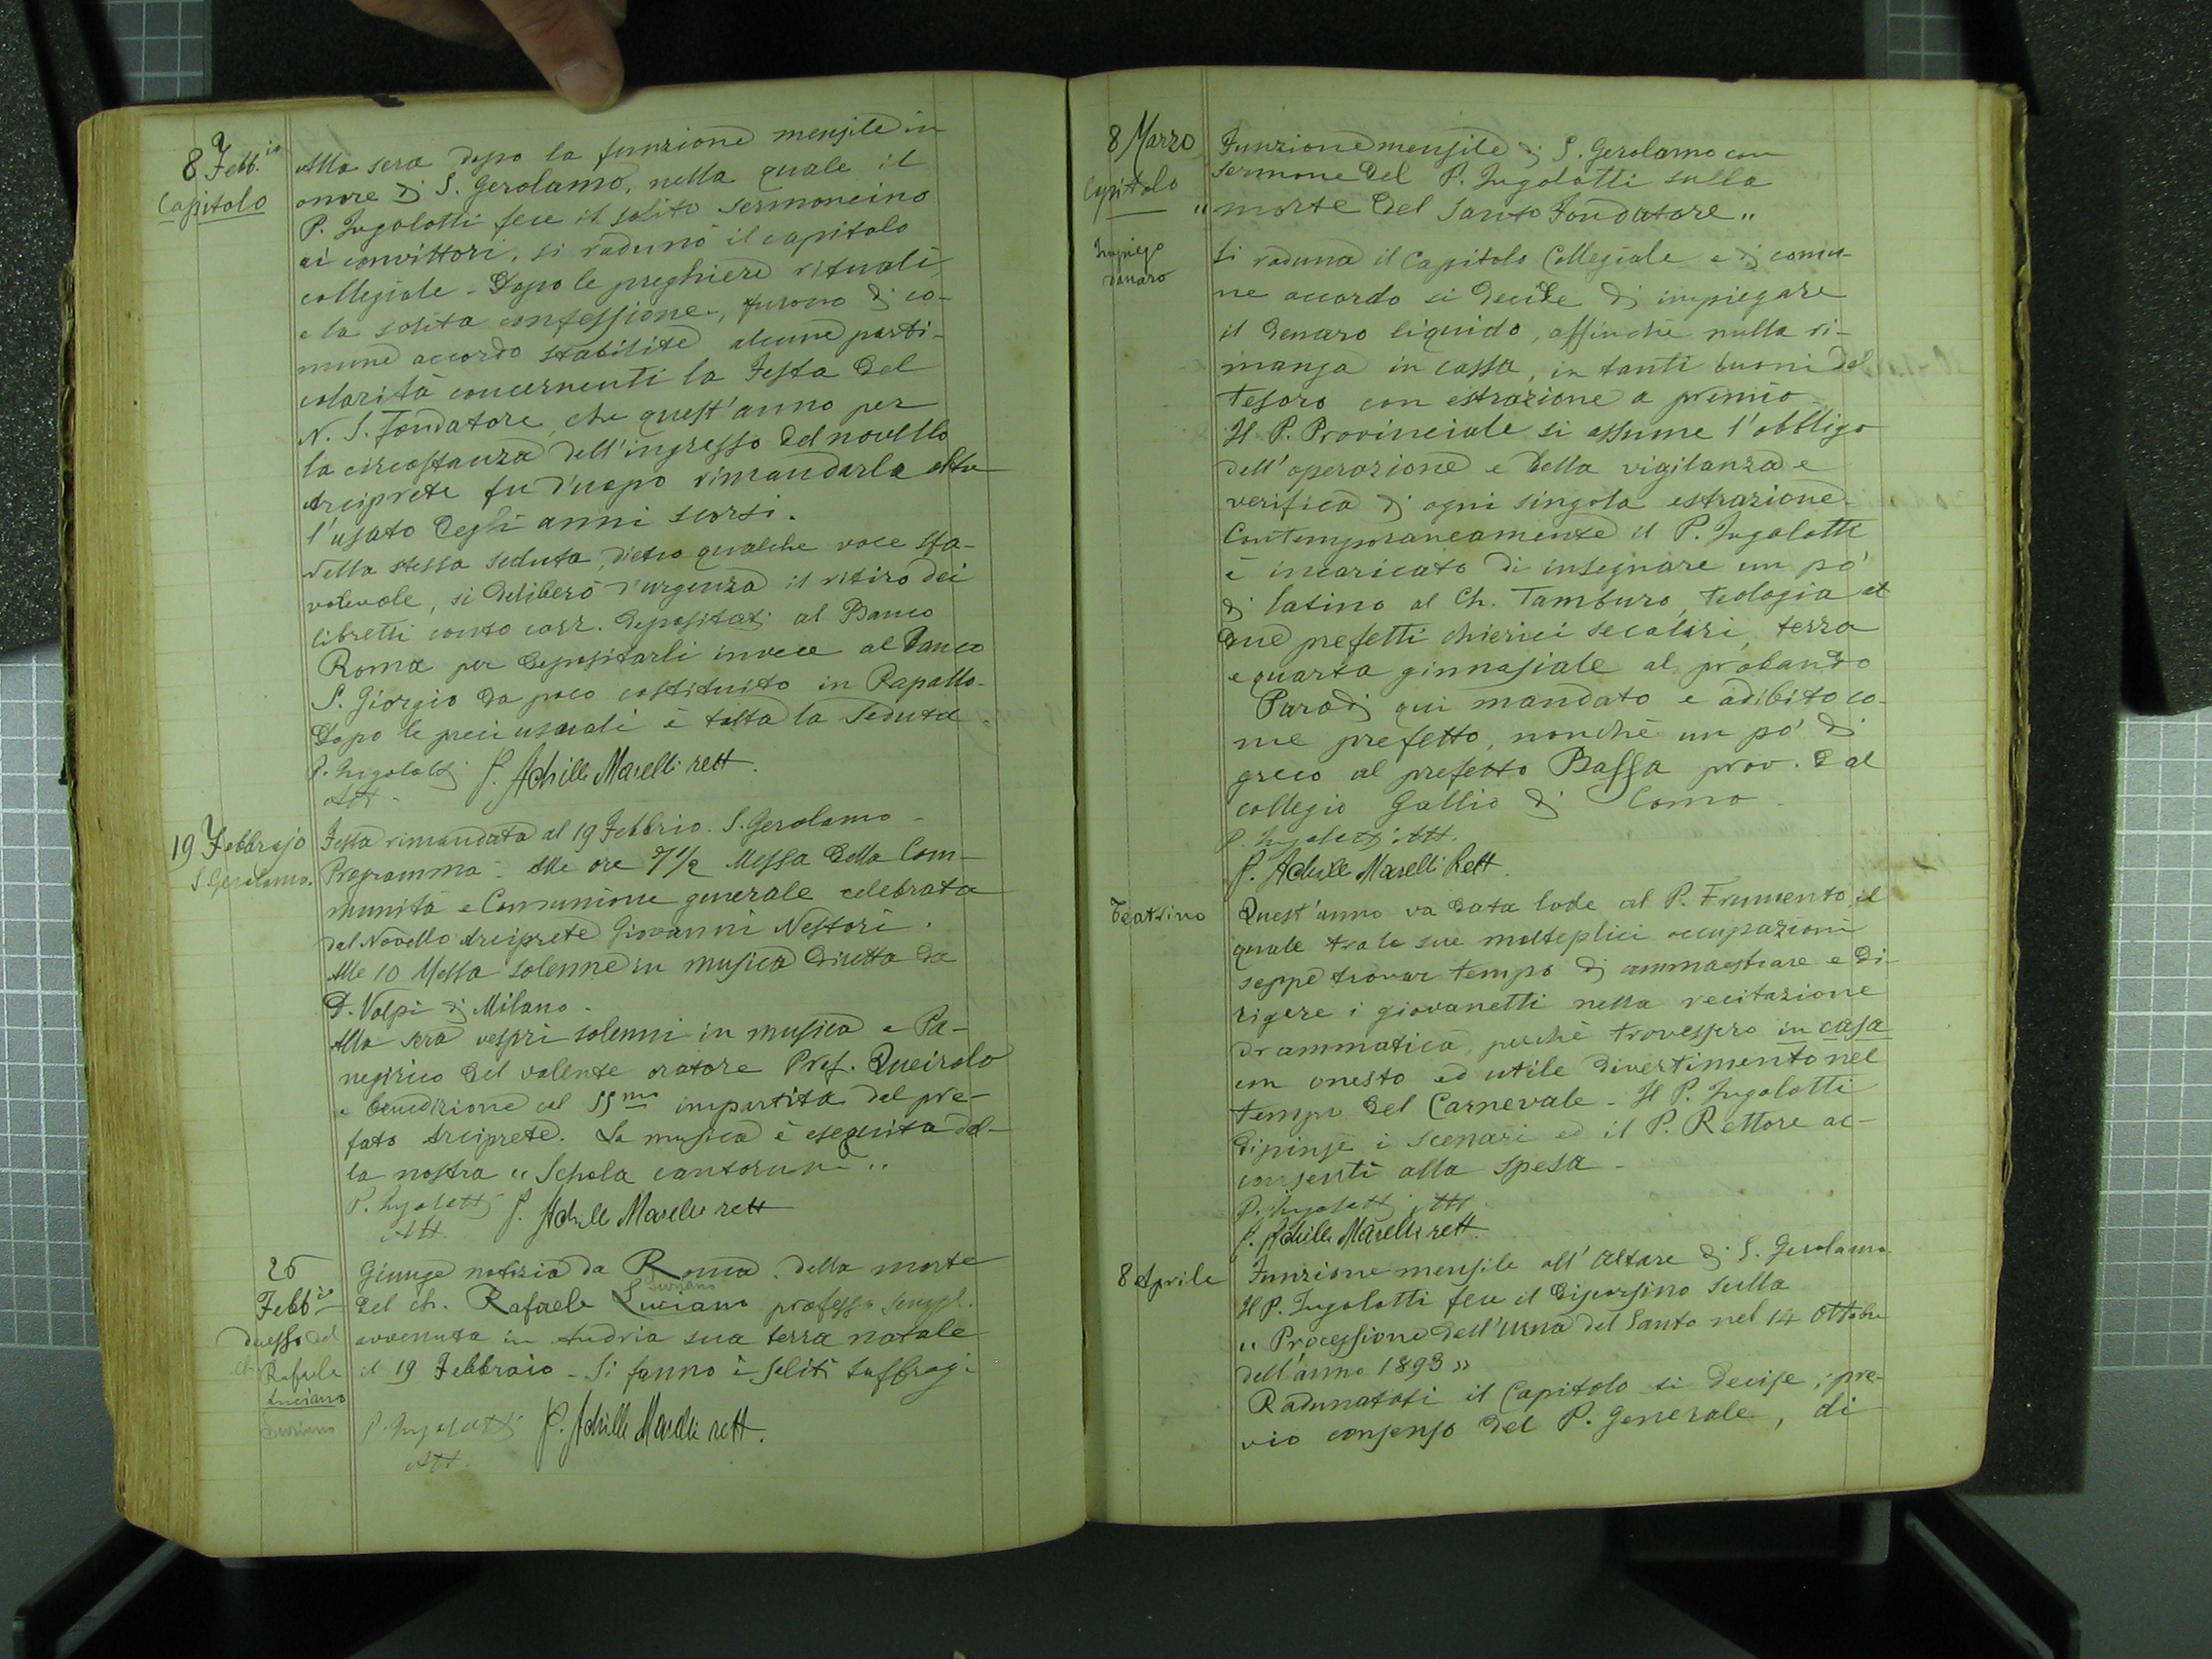 8 Febb.io
Capitolo
Alla sera dopo la funzione mensile in
onore di S. Gerolamo, nella quale il
P. Ingolotti fece il solito sermoncino
ai convittori, si radunò il capitolo
collegiale - Dopo le preghiere rituali
e la solita confessione, furono di co-
mune accordo stabilite alcune parti-
colarità concernenti la Festa del
N. S. Fondatore, che quest'anno per
la circostanza dell'ingresso del novello
Arciprete fu d'uopo rimandarla oltre
l'usato degli anni scorsi.
Nella stessa seduta, dietro qualche voce sfa-
vorevole, si deliberò d'urgenza il ritiro dei
libretti conto corr. depositati al Banco
Roma per depositarli invece al Banco
S. Giorgio da poco costituito in Rapallo-
Dopo le preci usuali è tolta la Seduta.
P. Ingolotti P. Achille Marelli rett.
Att.
19 Febbrajo
S. Gerolamo.
Festa rimandata al 19 Febbrio. S. Gerolamo -
Programma - Alle ore 7 1/2 Messa della Com-
munità e Comunione generale celebrata
dal Novello Arciprete Giovanni Nestori.
Alle 10 Messa solenne in musica diretta da
D. Volpi di Milano.
Alla sera vespri solenni in musica e Pa-
negirico del valente oratore Prof. Queirolo
e benedizione col SSmo impartita dal pre-
fato Arciprete. La musica è eseguita dal-
la nostra "Schola cantorum"
P. Ingolotti P. Achille Marelli rett
Att.
26
Febbio
decesso del
ch. Rafaele
Luciano
Suriano
Giunge notizia da Roma della morte
Suriano
del ch. Rafaele Luciano professo sempl.
avvenuta in Andria sua terra natale
il 19 Febbraio - Si fanno i soliti suffragi
P. Ingolotti P. Achille Marelli rett.
Att.
8 Marzo
Capitolo
Funzione mensile di S. Gerolamo con
sermone del P. Ingolotti sulla
"morte del Santo Fondatore"
Impiego
danaro
Si raduna il Capitolo Collegiale e di comu-
ne accordo si decide di impiegare
il denaro liquido, affinchè nulla ri-
manga in cassa, in tanti buoni del
Tesoro con estrazione a premio -
Il P. Provinciale si assume l'obbligo
dell'operazione e della vigilanza e
verifica di ogni singola estrazione -
Contemporaneamente il P. Ingolotti
è incaricato di insegnare un pò
di latino al Ch. Tamburo, teologia ai
due prefetti chierici secolari, terza
e quarta ginnasiale al probando
Parodi qui mandato e adibito co-
me prefetto, nonchè un pò di
greco al prefetto Bassa prov. dal
collegio Gallio di Como -
P. Ingolotti Att.
P. Achille Marelli Rett.
Teatrino
Quest'anno va data lode al P. Frumento, il
quale tra le sue molteplici occupazioni
seppe trovar tempo di ammaestrare e di-
rigere i giovanetti nella recitazione
drammatica, perchè trovassero in casa
un onesto ed utile divertimento nel
tempo del Carnevale - Il P. Ingolotti
dipinse i scenari ed il P. Rettore ac-
consentì alla spesa -
P. Ingolotti Att.
P. Achille Marelli rett.
8 Aprile
Funzione mensile all'altare di S. Gerolamo
Il P. Ingolotti fece il discorsino sulla
"Processione dell'urna del Santo nel 14 Ottobre
dell'anno 1893"
Radunatosi il Capitolo si decise, pre-
vio consenso del P. Generale, di